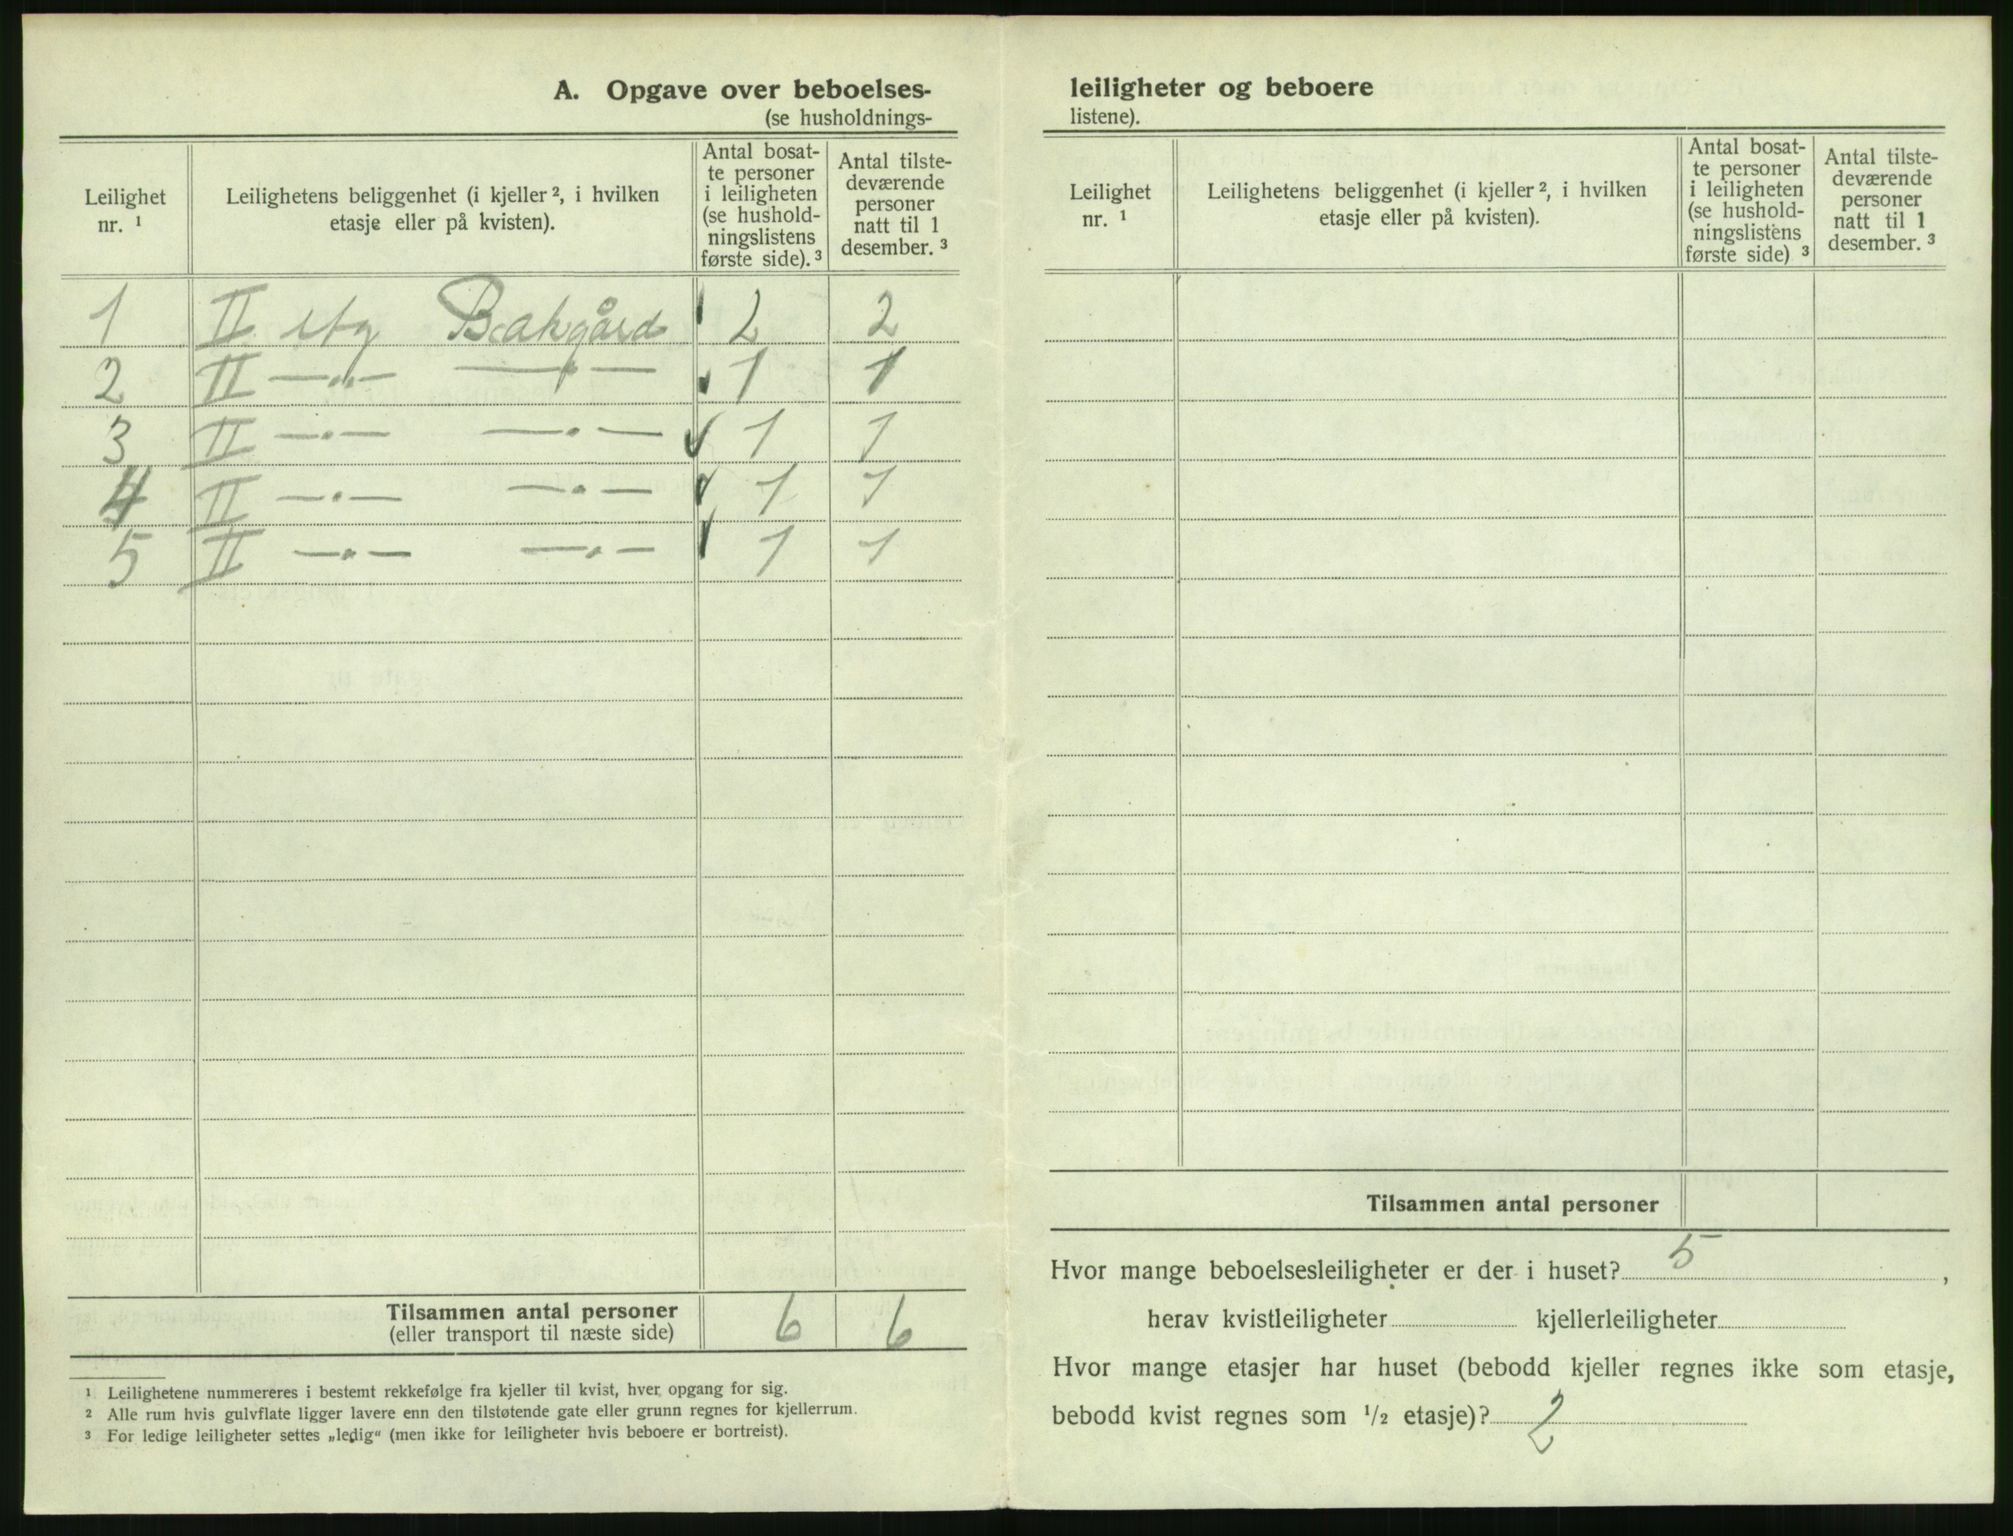 A. Opgave over beboelses-
(se husholdnings-
Leilighet nr. ¹
Leilighetens beliggenhet (i kjeller ², i hvilken etasje eller på kvisten).
Antal bosat-
te personer
i leiligheten
(se hushold-
ningslistens
første side). ³
Antal tilste-
deværende
personer
natt til 1
desember. ³
1 II etg Bakgård 2 2
2 II —„— —„— 1 1
3 II —„— —„— 1 1
4 II —„— —„— 1 1
5 II —„— —„— 1 1
Tilsammen antal personer 6 6
(eller transport til næste side)
¹ Leilighetene nummereres i bestemt rekkefølge fra kjeller til kvist, hver opgang for sig.
² Alle rum hvis gulvflate ligger lavere enn den tilstøtende gate eller grunn regnes for kjellerrum.
³ For ledige leiligheter settes „ledig“ (men ikke for leiligheter hvis beboere er bortreist).
leiligheter og beboere
listene).
Leilighet nr. ¹
Leilighetens beliggenhet (i kjeller ², i hvilken etasje eller på kvisten).
Antal bosat-
te personer
i leiligheten
(se hushold-
ningslistens
første side) ³
Antal tilste-
deværende
personer
natt til 1
desember. ³
Tilsammen antal personer
Hvor mange beboelsesleiligheter er der i huset? 5 ,
herav kvistleiligheter kjellerleiligheter
Hvor mange etasjer har huset (bebodd kjeller regnes ikke som etasje,
bebodd kvist regnes som ¹/₂ etasje)? 2